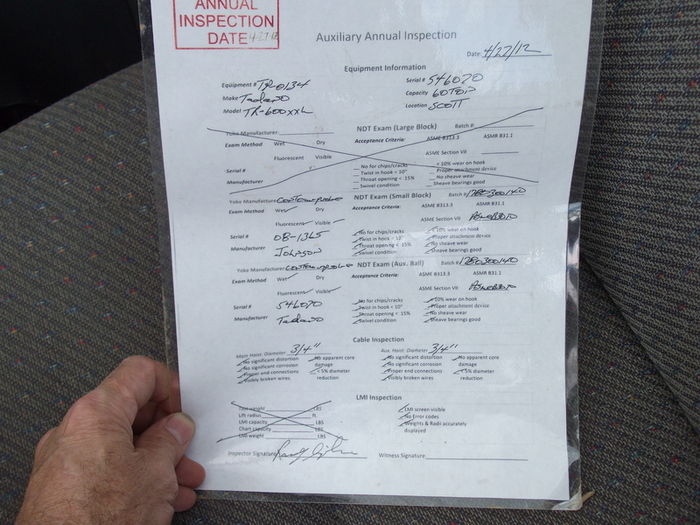 ANNUAL
INSPECTION
DATE 4-27-12
Auxiliary Annual Inspection
Date: 4/27/12
Equipment Information
Equipment # TR-0134 Serial # 546070
Make Tadano Capacity 60TON
Model TR-600XXL Location SCOTT
NDT Exam (Large Block)
Yoke Manufacturer Batch #
Exam Method Wet Dry Acceptance Criteria: ASME B313.3 ASMR B31.1
Fluorescent Visible ASME Section VII
Serial # No for chips/cracks < 10% wear on hook
Twist in hook < 10° Proper attachment device
Manufacturer Throat opening < 15% No sheave wear
Swivel condition Sheave bearings good
NDT Exam (Small Block)
Yoke Manufacturer Batch #
Exam Method Wet Dry Acceptance Criteria: ASME B313.3 ASMR B31.1
Fluorescent Visible ASME Section VII
Serial # OB-1365 No for chips/cracks < 10% wear on hook
Twist in hook < 10° Proper attachment device
Manufacturer Johnson Throat opening < 15% No sheave wear
Swivel condition Sheave bearings good
NDT Exam (Aux. Ball)
Yoke Manufacturer Batch #
Exam Method Wet Dry Acceptance Criteria: ASME B313.3 ASMR B31.1
Fluorescent Visible ASME Section VII
Serial # 546070 No for chips/cracks < 10% wear on hook
Twist in hook < 10° Proper attachment device
Manufacturer Tadano Throat opening < 15% No sheave wear
Swivel condition Sheave bearings good
Cable Inspection
Main Hoist: Diameter 3/4" Aux. Hoist: Diameter 3/4"
No significant distortion No apparent core No significant distortion No apparent core
No significant corrosion damage No significant corrosion damage
Proper end connections < 5% diameter Proper end connections < 5% diameter
Visibly broken wires reduction Visibly broken wires reduction
LMI Inspection
Test weight LBS LMI screen visible
Lift radius ft. No Error codes
LMI capacity LBS Weights & Radi accurately
Chart capacity LBS displayed
LMI weight LBS
Inspector Signature Witness Signature